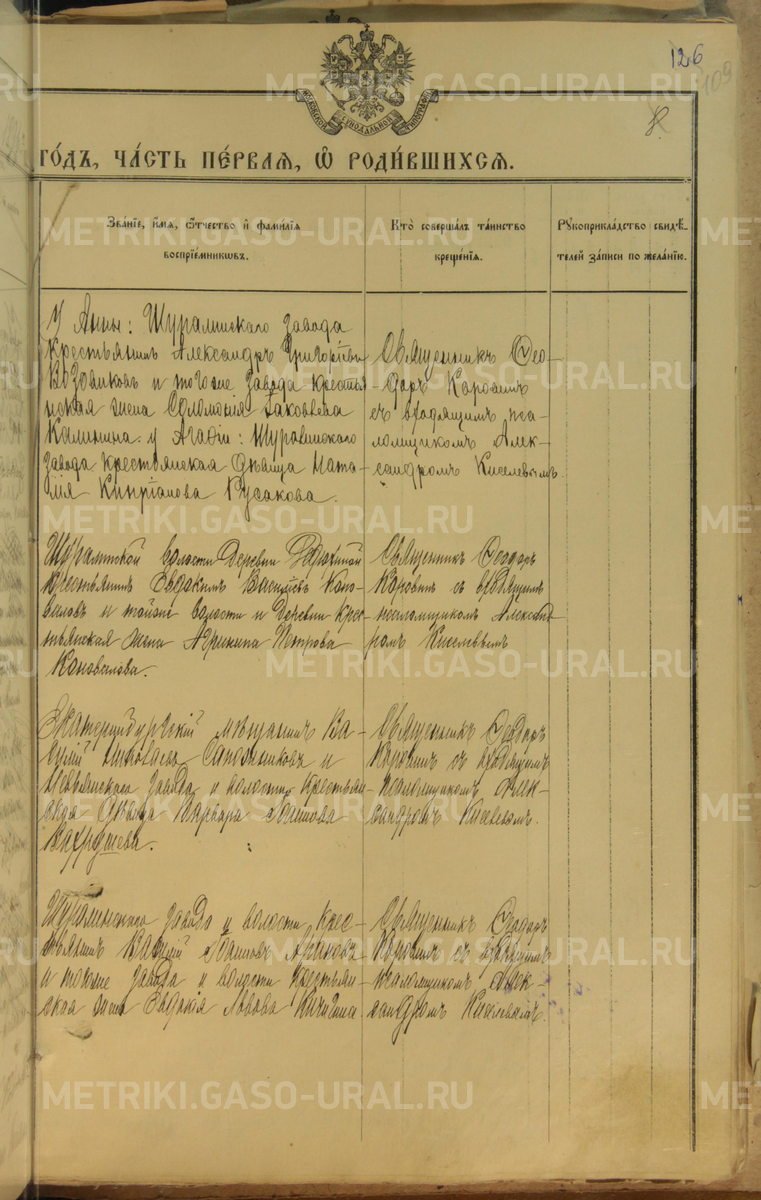 126
109
МОСКОВСКОЙ СѴНОДАЛЬНОЙ ТИПОГРАФІИ
ГО́ДЪ, ЧА́СТЬ ПЕ́РВАЯ, Ѡ҆ РОДИ́ВШИХСЯ.
Зва́нїе, и҆́мя, ѻ҆́тчество и҆ фами́лїя
воспрїе́мниковъ.
Кто̀ соверша́лъ та́инство
креще́нїя.
Рꙋкоприкла́дство свидѣ́-
телей за́писи по жела́нїю.
У Анны: Шуралинскаго завода
крестьянинъ Александръ Григорьевъ
и тогоже завода крестья-
нская жена Соломонія Іаковлева
Калинина. у Агафіи: Шуралинскаго
завода крестьянская дѣвица Ната-
лія Кипріанова Русакова.
Священникъ Ѳео-
доръ Коровинъ
съ псал-
ломщикомъ Алек-
сандромъ Киселевымъ.
Шуралинской волости деревни
крестьянинъ Евдокимъ Васильевъ Коно-
валовъ и тойже волости и деревни крес-
тьянская жена Агрипина Петрова
Коновалова.
Священникъ Ѳеодоръ
Коровинъ съ
псаломщикомъ Александ-
ромъ Киселевымъ
Екатеринбургскій мѣщанинъ Ва-
силій Сапожниковъ и
Невьянскаго завода и волости крестьян-
ская дѣвица Варвара
Вахрушева.
Священникъ Ѳеодоръ
Коровинъ съ
псаломщикомъ Алек-
сандромъ Киселевымъ.
Шуралинскаго завода и волости крес-
тьянинъ Василій
и тогоже завода и волости крестьян-
ская жена Евдокія Львова Кичигина
Священникъ Ѳеодоръ
Коровинъ съ
псаломщикомъ Алек-
сандромъ Киселевымъ.
METRIKI.GASO-URAL.RU